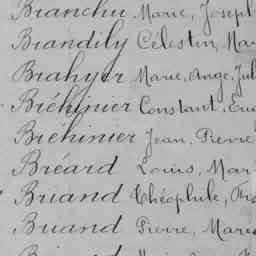 Branchu Marie, Joseph
Brandily Célestin, Mar
Brahyer Marie, Ange, Jul
Bréhinier Constant, Eu
Bréhinier Jean, Pierre
Bréard Louis, Mar
Briand Théophile,
Briand Pierre, Marie